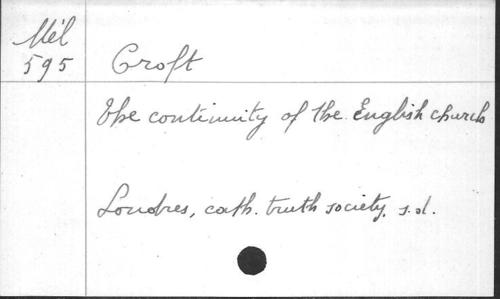 Mél
595
Croft
The continuity of the English church
Londres, cath. truth society, s.d.